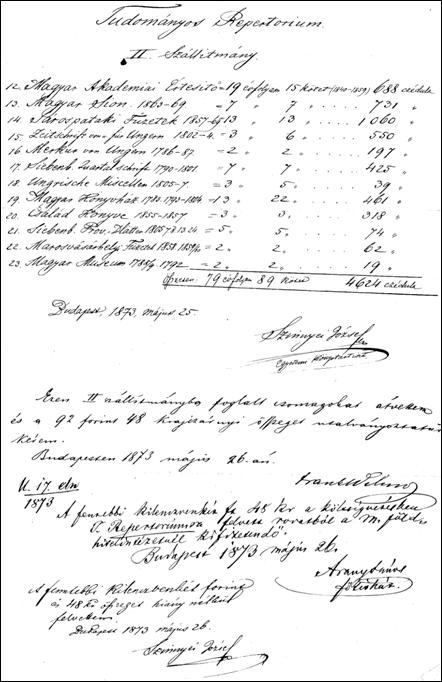 Tudományos Repertorium.
II. Szállitmány.
12. Magyar Akadémiai Értesitő = 19 évfolyam 15 kötet (1840-1859) 688 czédula
13. Magyar Sion. 1863-69 = 7 " 7 " 731 "
14. Sárospataki Füzetek 1857-69 13 " 13 " 1060 "
15. Zeitschrift von u. für Ungern 1802-4. = 3 " 6 " 550 "
16. Merkur von Ungarn 1786-87. = 2 " 2 " 197 "
17. Siebenb. Quartalschrift 1790-1801 = 7 " 7 " 425 "
18. Ungrische Miscellen 1805-7. = 3 " 5 " 39 "
19. Magyar Könyvház 1783. 1793-1804 = 13 " 22 " 461 "
20. Család Könyve 1855-1857 = 3 " 3 " 318 "
21. Siebenb. Prov. Blätter 1805-7. 8. 13. 24 = 5 " 5 " 74 "
22. Marosvásárhelyi Füzetek 1858. = 2 " 2 " 62 "
23. Magyar Museum 1788/9. 1792 = 2 " 2 " 19 "
Összesen: 79 évfolyam 89 kötet 4624 czédula
Budapest, 1873. május 25.
Szinnyei József
Egyetemi könyvtártiszt
Ezen II szállitmányba foglalt csomagokat átvettem
és a 92 forint 48 krajczárnyi összeget utalványoztatni
kérem.
Budapesten 1873 május 26-án.
U. 17. eln
1873
A fenebbi kilenczvenkét ft 48 kr a költségvetésben
T. Repertoriumra felvett rovatból a m. föld-
hitelintézetnél kifizetendő.
Budapest 1873 május 26.
Arany János
főtitkár.
A fennebbi kilenczvenkét forint
és 48 kr összeget hiány nélkül
felvettem.
Budapest 1873 május 26.
Szinnyei József